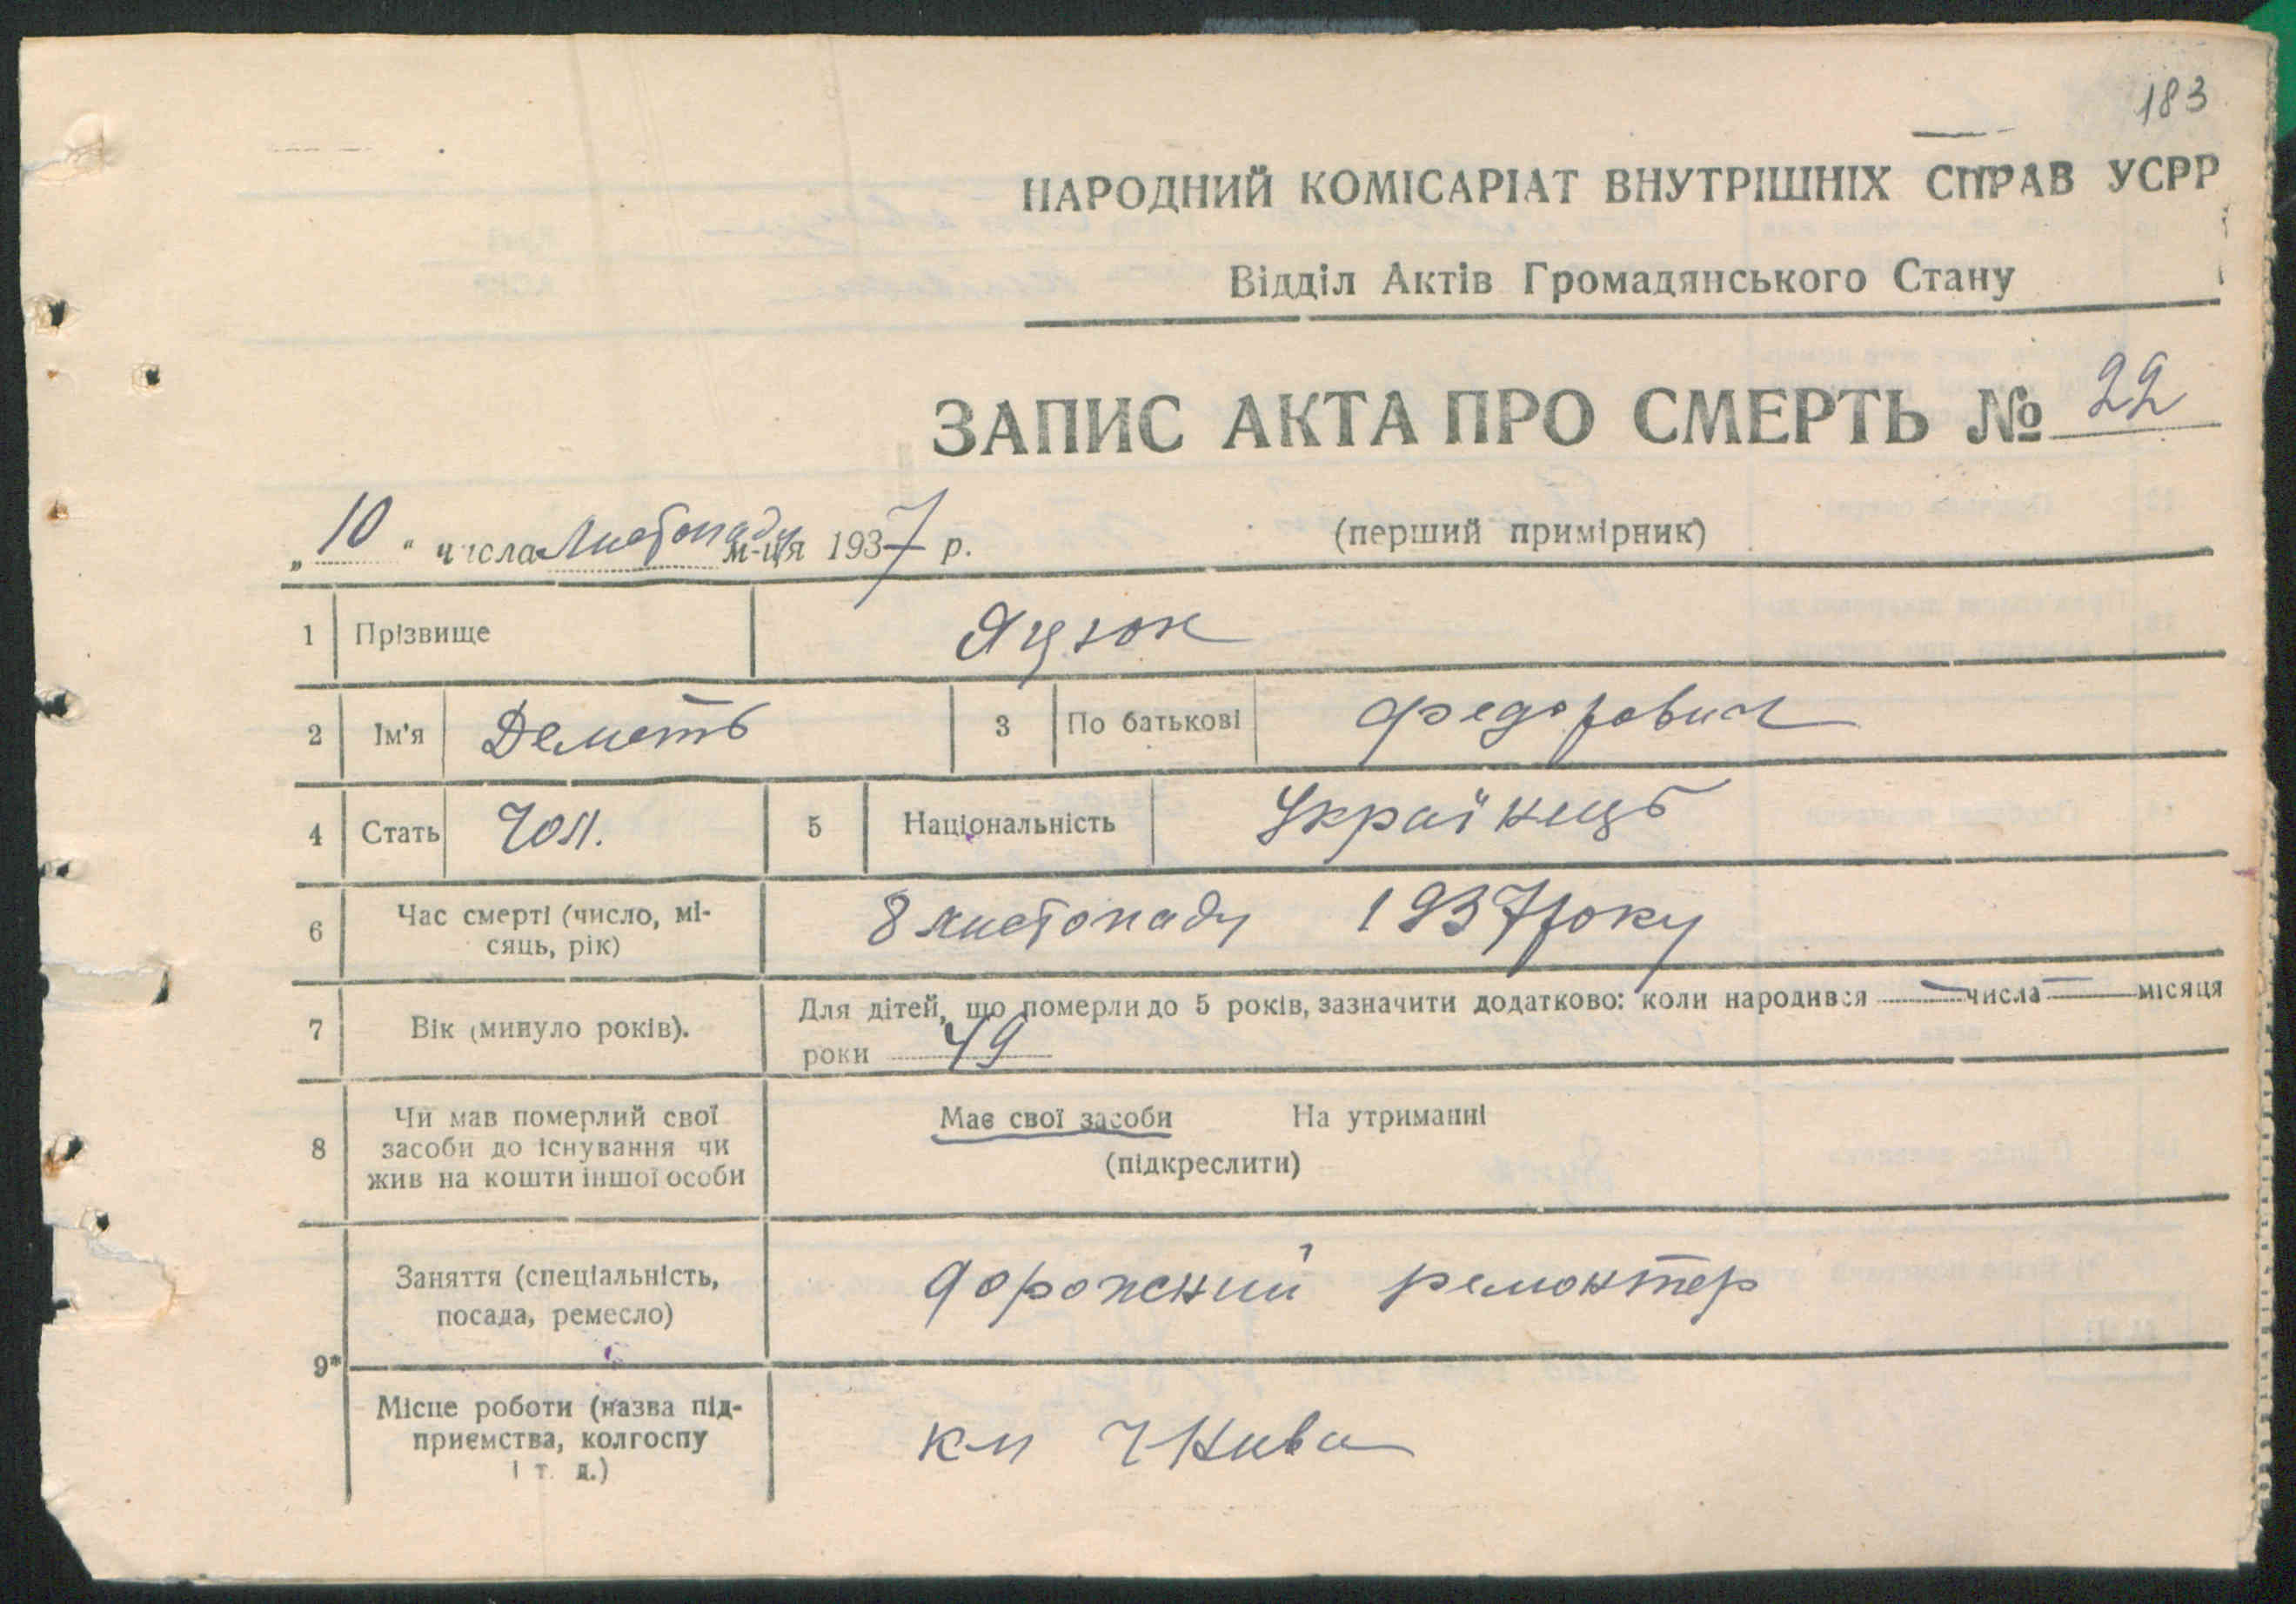 183
НАРОДНИЙ КОМІСАРІАТ ВНУТРІШНІХ СПРАВ УСРР
Відділ Актів Громадянського Стану
ЗАПИС АКТА ПРО СМЕРТЬ № 22
„ 10 “ числа Листопаду м-ця 1937 р.
(перший примірник)
1 Прізвище Яцюк
2 Ім'я Деметь 3 По батькові Федорович
4 Стать Чол. 5 Національність Українець
6 Час смерті (число, мі-
сяць, рік)
8 листопаду 1937 року
7 Вік (минуло років).
Для дітей, що померли до 5 років, зазначити додатково: коли народився — числа — місяця
роки 49
8 Чи мав померлий свої
засоби до існування чи
жив на кошти іншої особи
Має свої засоби На утриманні
(підкреслити)
9*
Заняття (спеціальність,
посада, ремесло)
дорожний ремонтер
Місце роботи (назва під-
приємства, колгоспу
і т. д.)